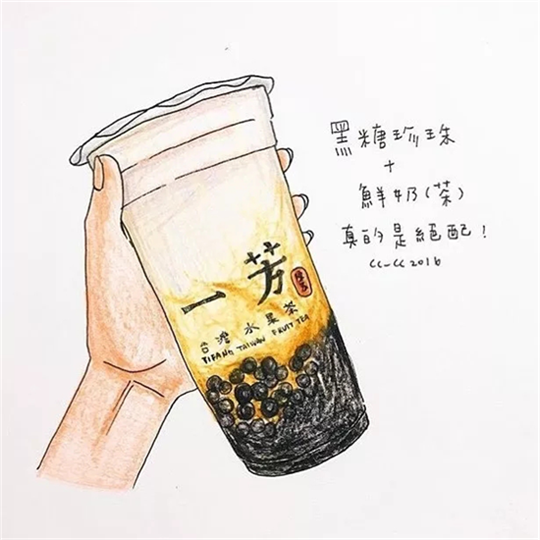 黑糖珍珠
+
鮮奶(茶)
真的是絕配!
cc-cc2016
一芳
台灣水果茶
YIFANG TAIWAN FRUIT TEA